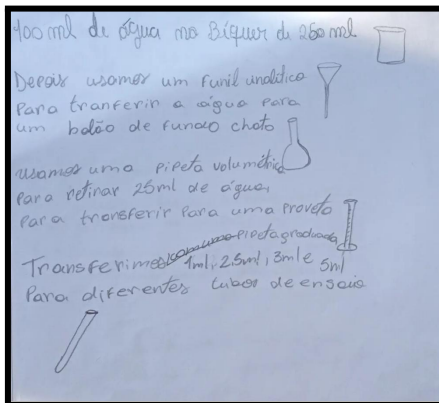 100 ml de água no Béquer de 250 ml
Depois usamos um funil analítico
Para tranferir a água para
um balão de fundo chato
usamos uma pipeta volumétrica
para retirar 25ml de água,
para transferir para uma proveta
Transferimos com uma pipeta graduada 1ml, 2.5ml, 3ml e 5ml
Para diferentes tubos de ensaio